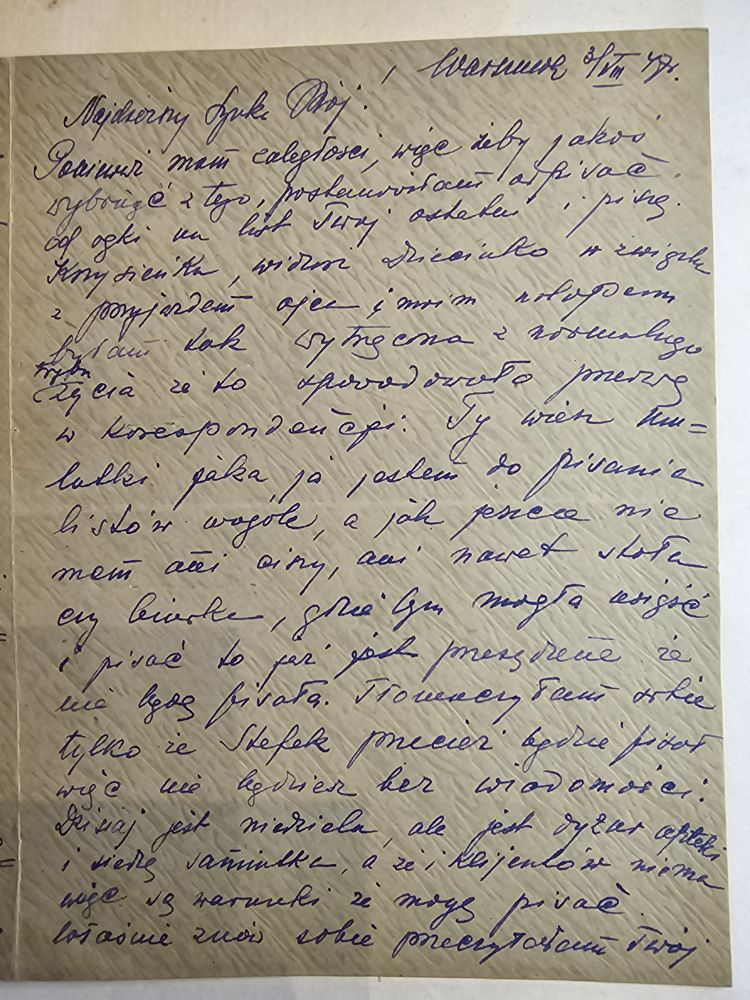 Warszawa 3/VIII 47r.
Najdroższy Synku Mój!
Ponieważ mam zaległości, więc żeby jakoś
wybrnąć z tego, postanowiłam odpisać
od ręki na list Twój ostatni i piszę.
Krzysieńku, widzisz Dziecinko w związku
z przyjazdem ojca i moim
byłam tak wytrącona z normalnego
trybu
życia że to spowodowało przerwę
w korespondencji. Ty wiesz Mu=
latki jaka ja jestem do pisania
listów wogóle, a jak jeszcze nie
mam ani ciszy, ani nawet stołu
czy biurka, gdzie bym mogła usiąść
i pisać to już jest przesądzone że
nie będę pisała. Tłomaczyłam sobie
tylko że Stefek przecież będzie pisał
więc nie będziesz bez wiadomości.
Dzisiaj jest niedziela, ale jest dyżur apteki
i siedzę samiutka, a że i klijentów niema
więc są warunki że mogę pisać.
Właśnie znów sobie przeczytałam Twój